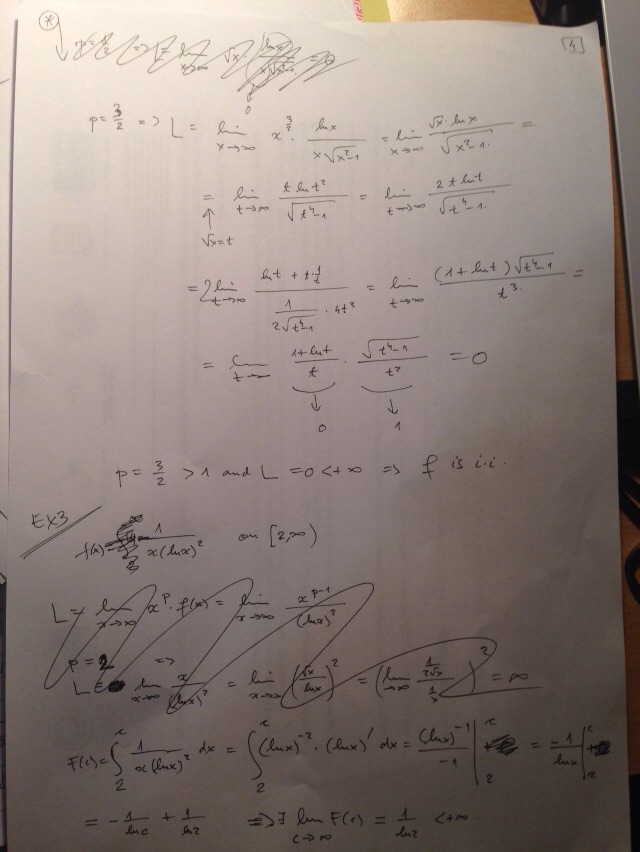 4
p = 3/2 => L = lim x→∞ x^(3/2) · ln x / (x√(x²-1)) = lim x→∞ √x · ln x / √(x²-1) =
= lim t→∞ t ln t² / √(t⁴-1) = lim t→∞ 2 t ln t / √(t⁴-1)
↑
√x = t
= 2 lim t→∞ (ln t + t · 1/t) / (1/(2√(t⁴-1)) · 4t³) = lim t→∞ (1 + ln t) √(t⁴-1) / t³ =
= lim t→∞ (1 + ln t)/t · √(t⁴-1)/t² = 0
↓ ↓
0 1
p = 3/2 > 1 and L = 0 < +∞ => f is i.i.
EX3
f(x) = 1/(x(ln x)²) on [2,∞)
L = lim x→∞ x^p · f(x) = lim x→∞ x^(p-1)/(ln x)²
p = 2 =>
L = lim x→∞ x/(ln x)² = lim x→∞ (√x/ln x)² = (lim x→∞ (1/(2√x))/(1/x))² = ∞
F(c) = ∫₂^c 1/(x(ln x)²) dx = ∫₂^c (ln x)⁻² · (ln x)' dx = (ln x)⁻¹/-1 |₂^c = -1/ln x |₂^c
= - 1/ln c + 1/ln 2 => ∃ lim c→∞ F(c) = 1/ln 2 < +∞.